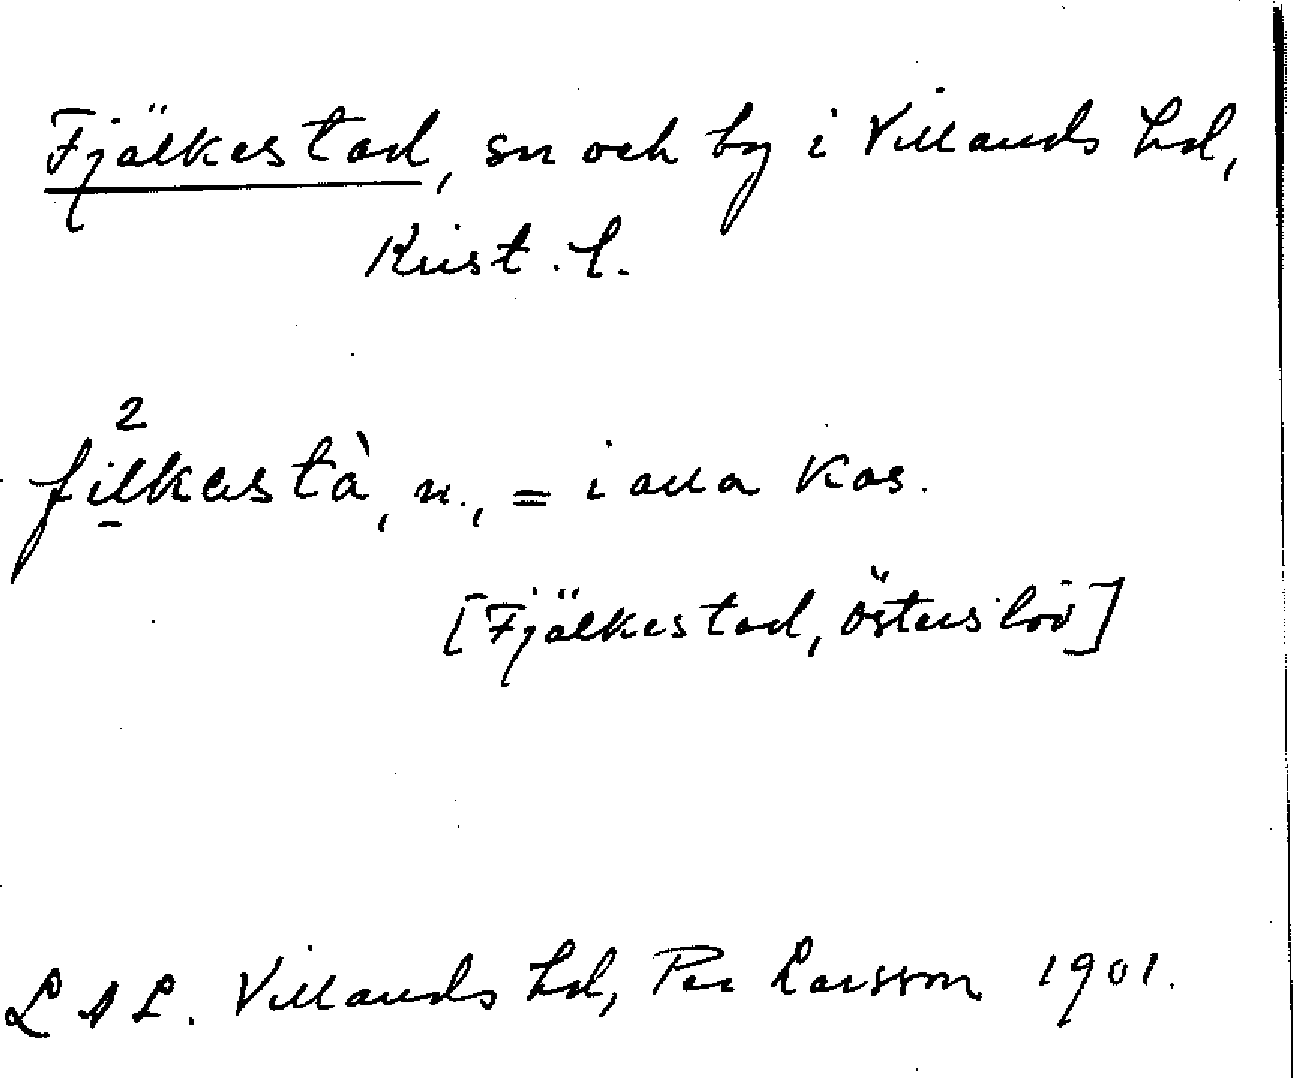 Fjälkestad, sn och by i Villands hd,
Krist. l.
2
filkastà, n., = i alla kas.
[Fjälkestad, Österslöv]
L A L. Villands hd, Per Larsson 1901.